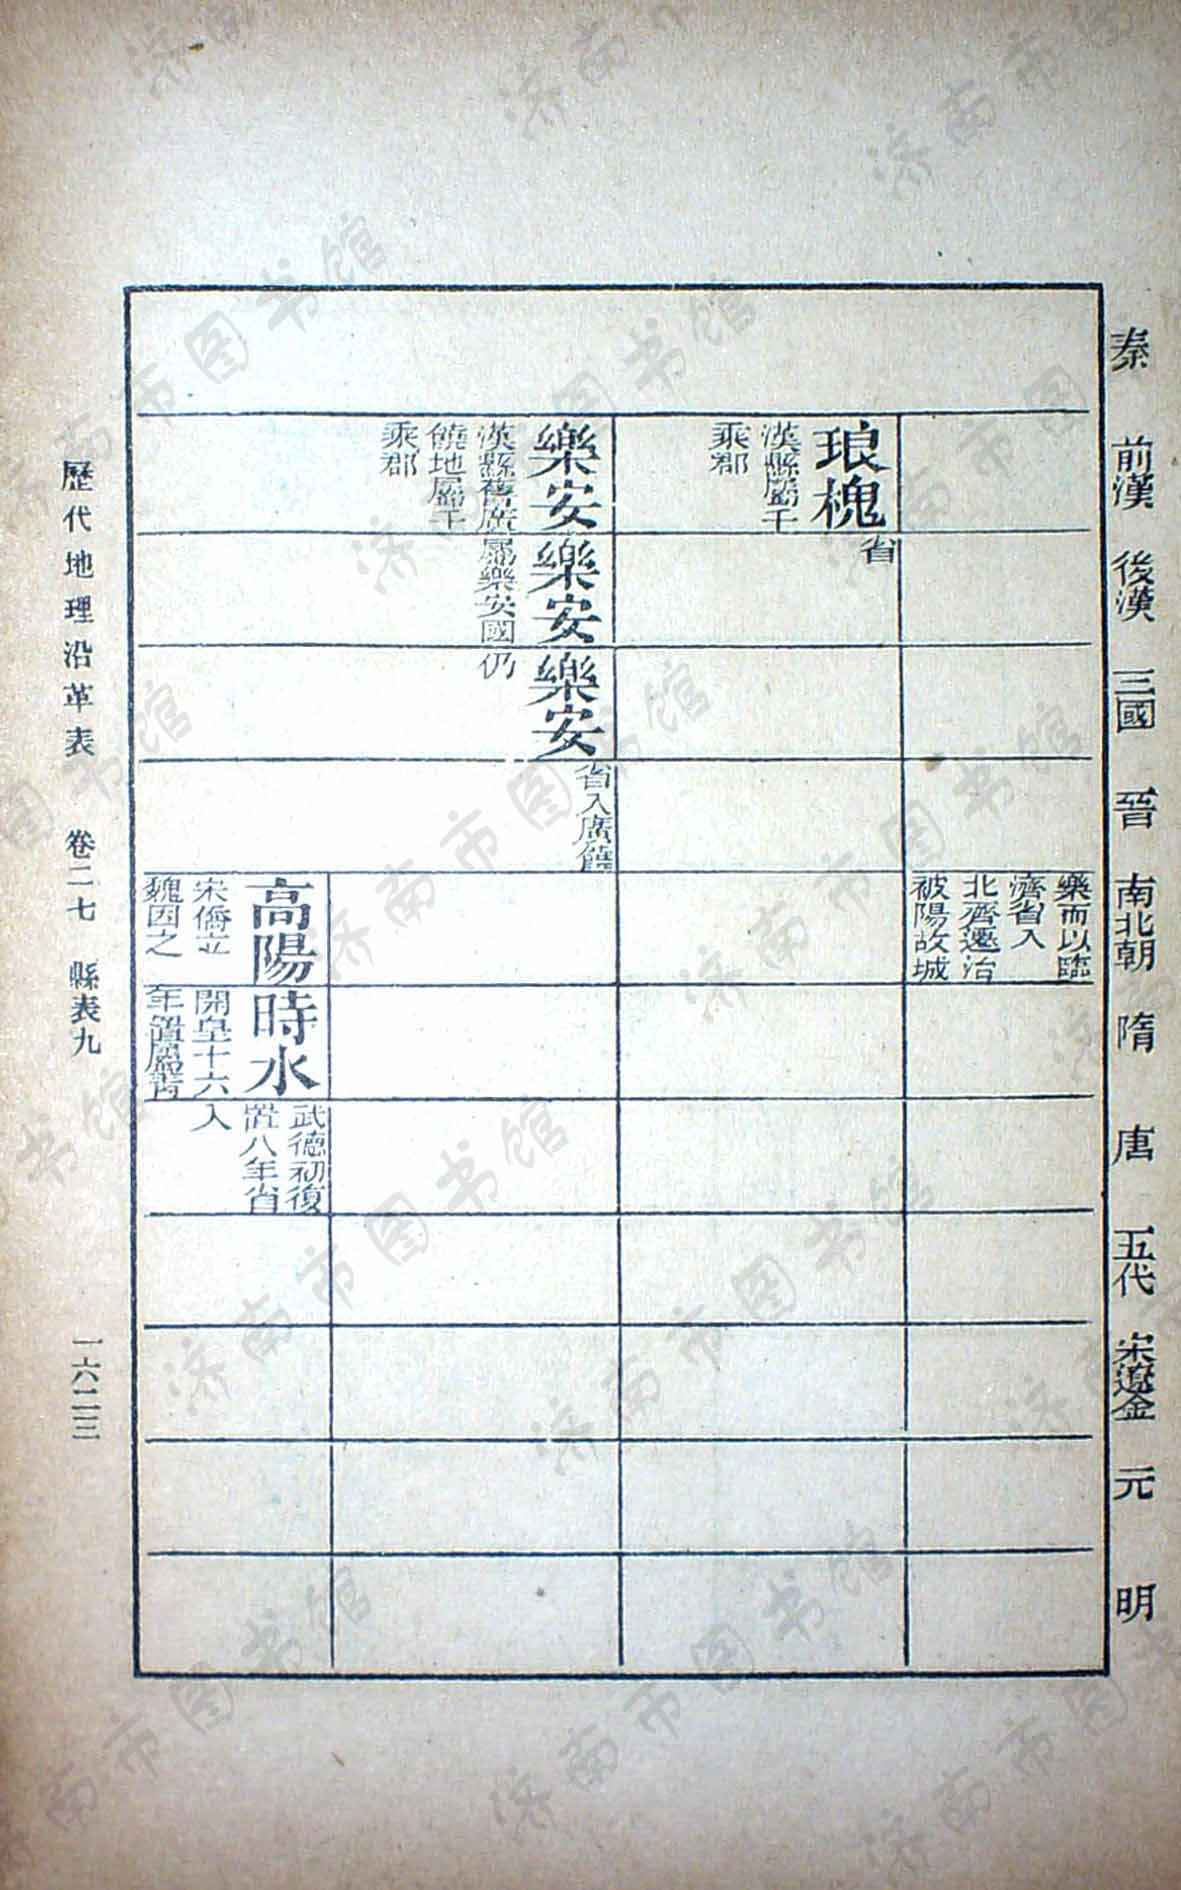 秦
前漢
後漢
三國
晉
南北朝
隋
唐
五代
宋遼金
元
明
樂而以臨
濟省入
北齊遷治
被陽故城
琅槐
漢縣屬千
乘郡
省
樂安
漢縣舊廣
饒地屬千
乘郡
樂安
屬樂安國
樂安
仍
省入廣饒
高陽
宋僑立
魏因之
時水
開皇十六
年置屬青
武德初復
置八年省
入
歷代地理沿革表 卷二七 縣表九 一六二三
济南市图书馆